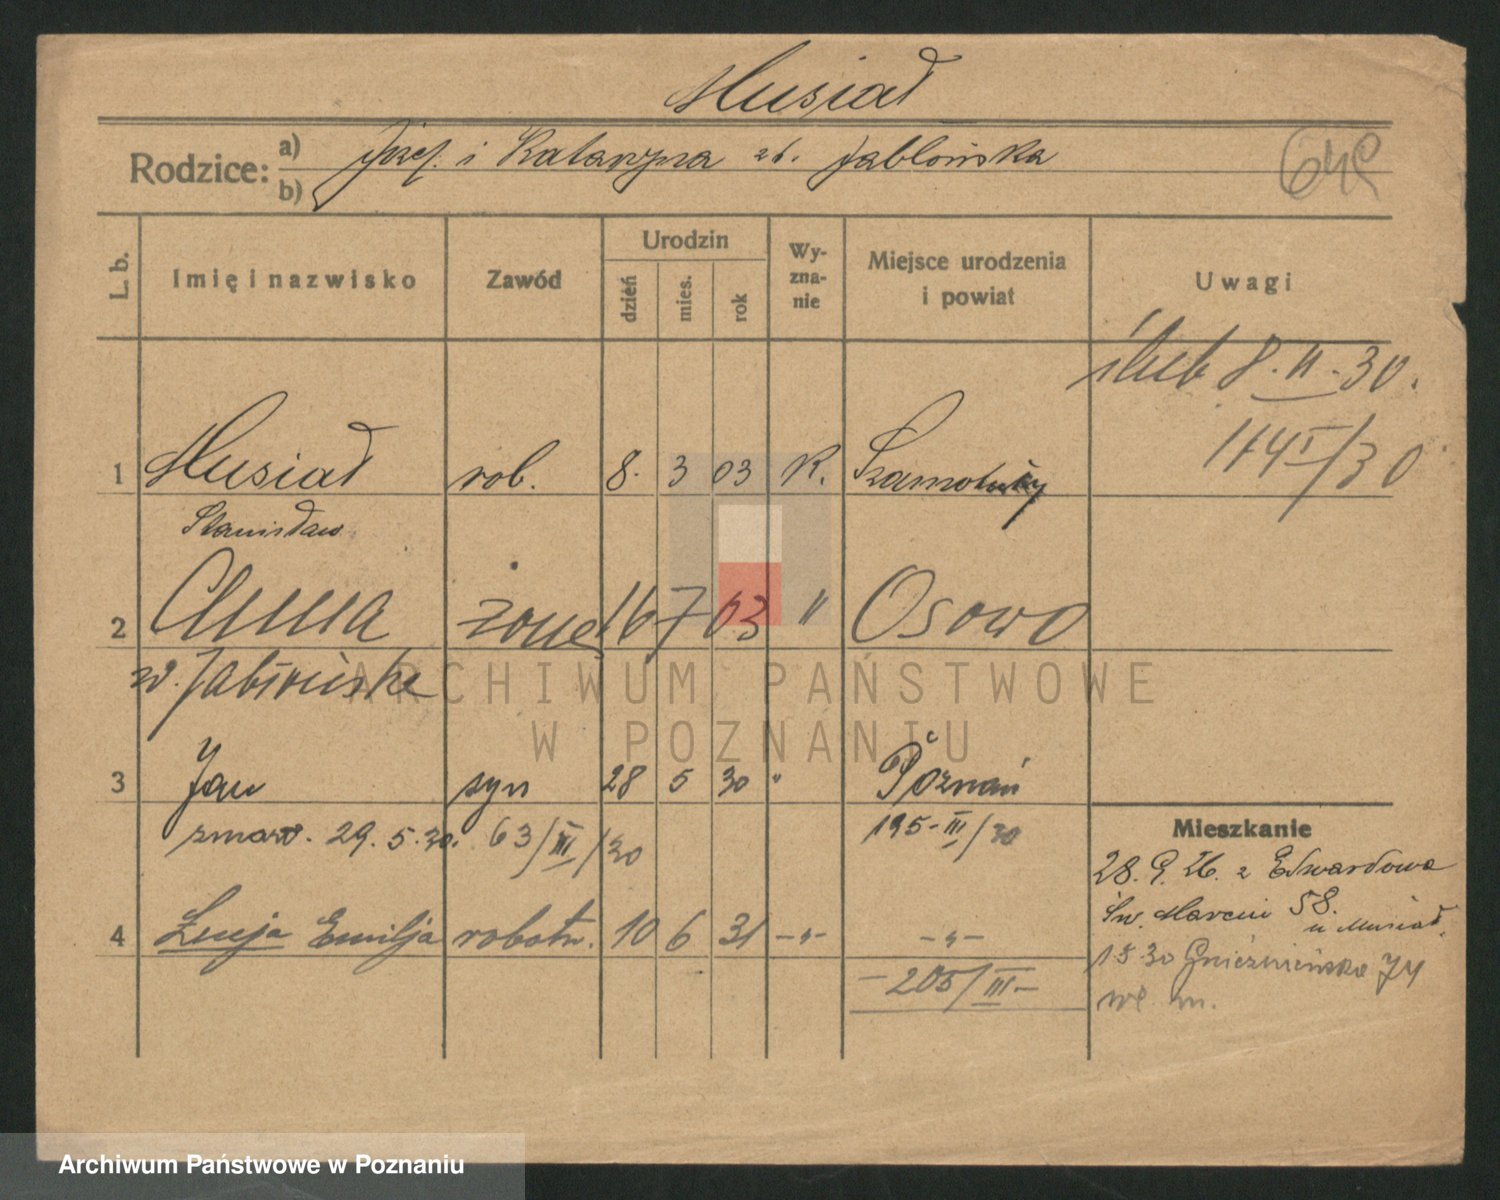 Musiał
Rodzice: a) Józef. i Katarzyna zd. Jabłońska
b)
L. b. Imię i nazwisko Zawód Urodzin dzień mies. rok Wyznanie Miejsce urodzenia i powiat Uwagi
ślub 8. II. 30.
144 I/30
1 Musiał rob. 8. 3 03 K. Szamotuły
Stanisław
2 Anna żona 16 7 03 " Osowo
Jabłońska
3 Jan syn 28 5 30 " Poznań
zmarł. 29. 5. 30. 63/III/30 195-III/30
Mieszkanie
28. 9. 26. z Edwardowa
Św. Marcin 58.
u Musiał.
4 Łucja Emilja robotn. 10 6 31 -„- -„-
- 205/III -
30 Gnieźnieńska 74
wł m.
ARCHIWUM PAŃSTWOWE
W POZNANIU
Archiwum Państwowe w Poznaniu